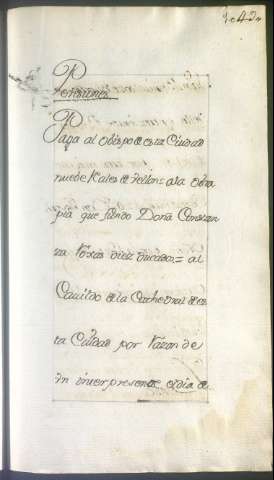 Pensiones
Paga al obispo de esta Ciudad
nuebe Reales de vellon = a la obra
pia que fundo Doña Constan
za diez ducados = al
Cavildo de la Cathedral de es
ta Ciudad por razon de
Vn interpresente el dia de